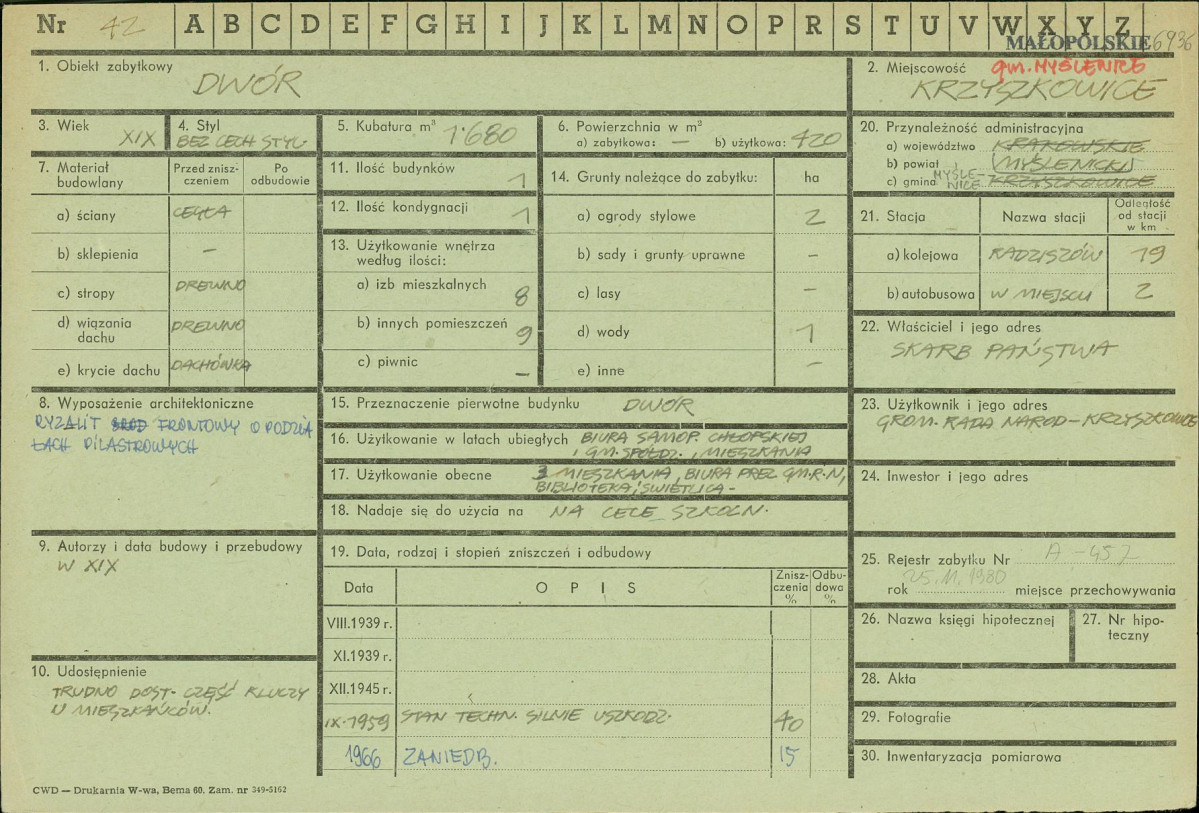 Nr 42 A B C D E F G H I J K L M N O P R S T U V W X Y Z
MAŁOPOLSKIE 6936
1. Obiekt zabytkowy
DWÓR
2. Miejscowość gm. MYŚLENICE
KRZYSZKOWICE
3. Wiek
XIX
4. Styl
BEZ CECH STYL.
5. Kubatura m³ 1.680
6. Powierzchnia w m²
a) zabytkowa: — b) użytkowa: 420
20. Przynależność administracyjna
a) województwo KRAKOWSKIE
b) powiat (MYŚLENICKI)
c) gmina MYŚLE-NICE KRZYSZKOWICE
7. Materiał budowlany
Przed znisz-czeniem
Po odbudowie
a) ściany CEGŁA
b) sklepienia —
c) stropy DREWNO
d) wiązania dachu DREWNO
e) krycie dachu DACHÓWKA
11. Ilość budynków 1
12. Ilość kondygnacji 1
13. Użytkowanie wnętrza
według ilości:
a) izb mieszkalnych 8
b) innych pomieszczeń 9
c) piwnic —
14. Grunty należące do zabytku: ha
a) ogrody stylowe 2
b) sady i grunty uprawne —
c) lasy —
d) wody 1
e) inne —
21. Stacja
Nazwa stacji
Odległość od stacji w km
a) kolejowa RADZISZÓW 19
b) autobusowa W MIEJSCU 2
22. Właściciel i jego adres
SKARB PAŃSTWA
8. Wyposażenie architektoniczne
RYZALIT FRONTOWY O PODZIA
ŁACH PILASTROWYCH
15. Przeznaczenie pierwotne budynku DWÓR
16. Użytkowanie w latach ubiegłych BIURA SAMOP. CHŁOPSKIEJ
I GM. SPÓŁDZ., MIESZKANIA
17. Użytkowanie obecne 3 MIESZKANIA, BIURA PREZ GM.R.N,
BIBLIOTEKA, ŚWIETLICA-
18. Nadaje się do użycia na NA CELE SZKOLN.
23. Użytkownik i jego adres
GROM. RADA NAROD-KRZYSZKOWICE
24. Inwestor i jego adres
9. Autorzy i data budowy i przebudowy
W XIX
19. Data, rodzaj i stopień zniszczeń i odbudowy
Data
OPIS
Znisz-czenia %
Odbu-dowa %
VIII.1939 r.
XI.1939 r.
XII.1945 r.
IX.1959 STAN TECHN. SILNIE USZKODZ. 40
1966 ZANIEDB. 15
25. Rejestr zabytku Nr A-457
rok 25.11.1980 miejsce przechowywania
26. Nazwa księgi hipotecznej
27. Nr hipo-teczny
10. Udostępnienie
TRUDNO DOST- CZĘŚĆ KLUCZY
U MIESZKAŃCÓW.
28. Akta
29. Fotografie
30. Inwentaryzacja pomiarowa
CWD — Drukarnia W-wa, Bema 60. Zam. nr 349-5162